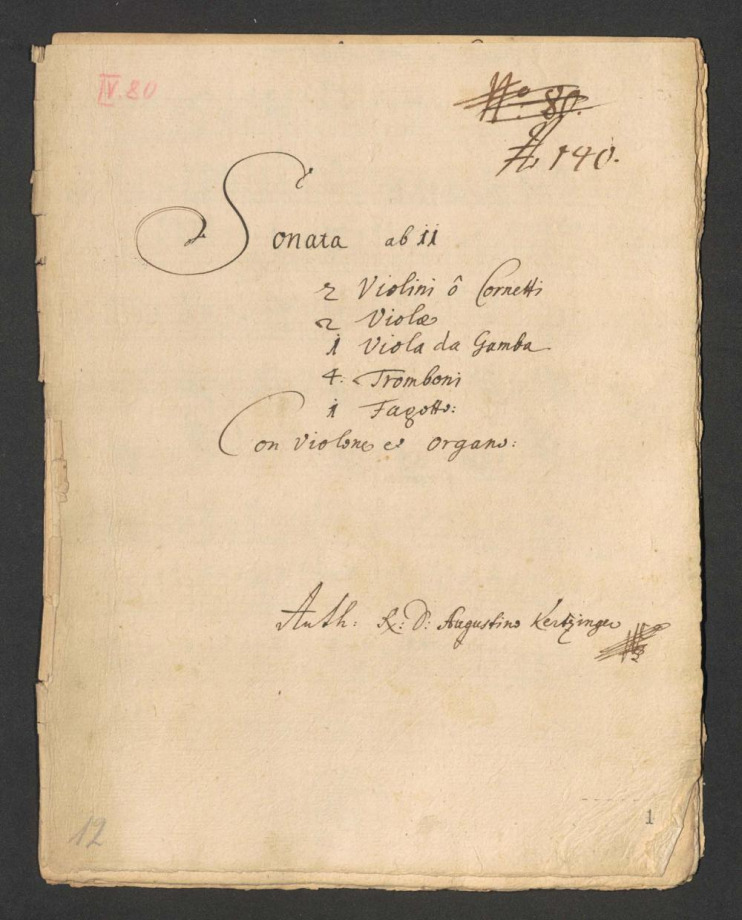 IV. 80
No. 80.
A 140.
Sonata ab 11
2 Violini ô Cornetti
2 Violæ
1 Viola da Gamba
4: Tromboni
1 Fagotto:
Con Violone et Organo:
Auth: R: D: Augustino Kertzinger
12
1